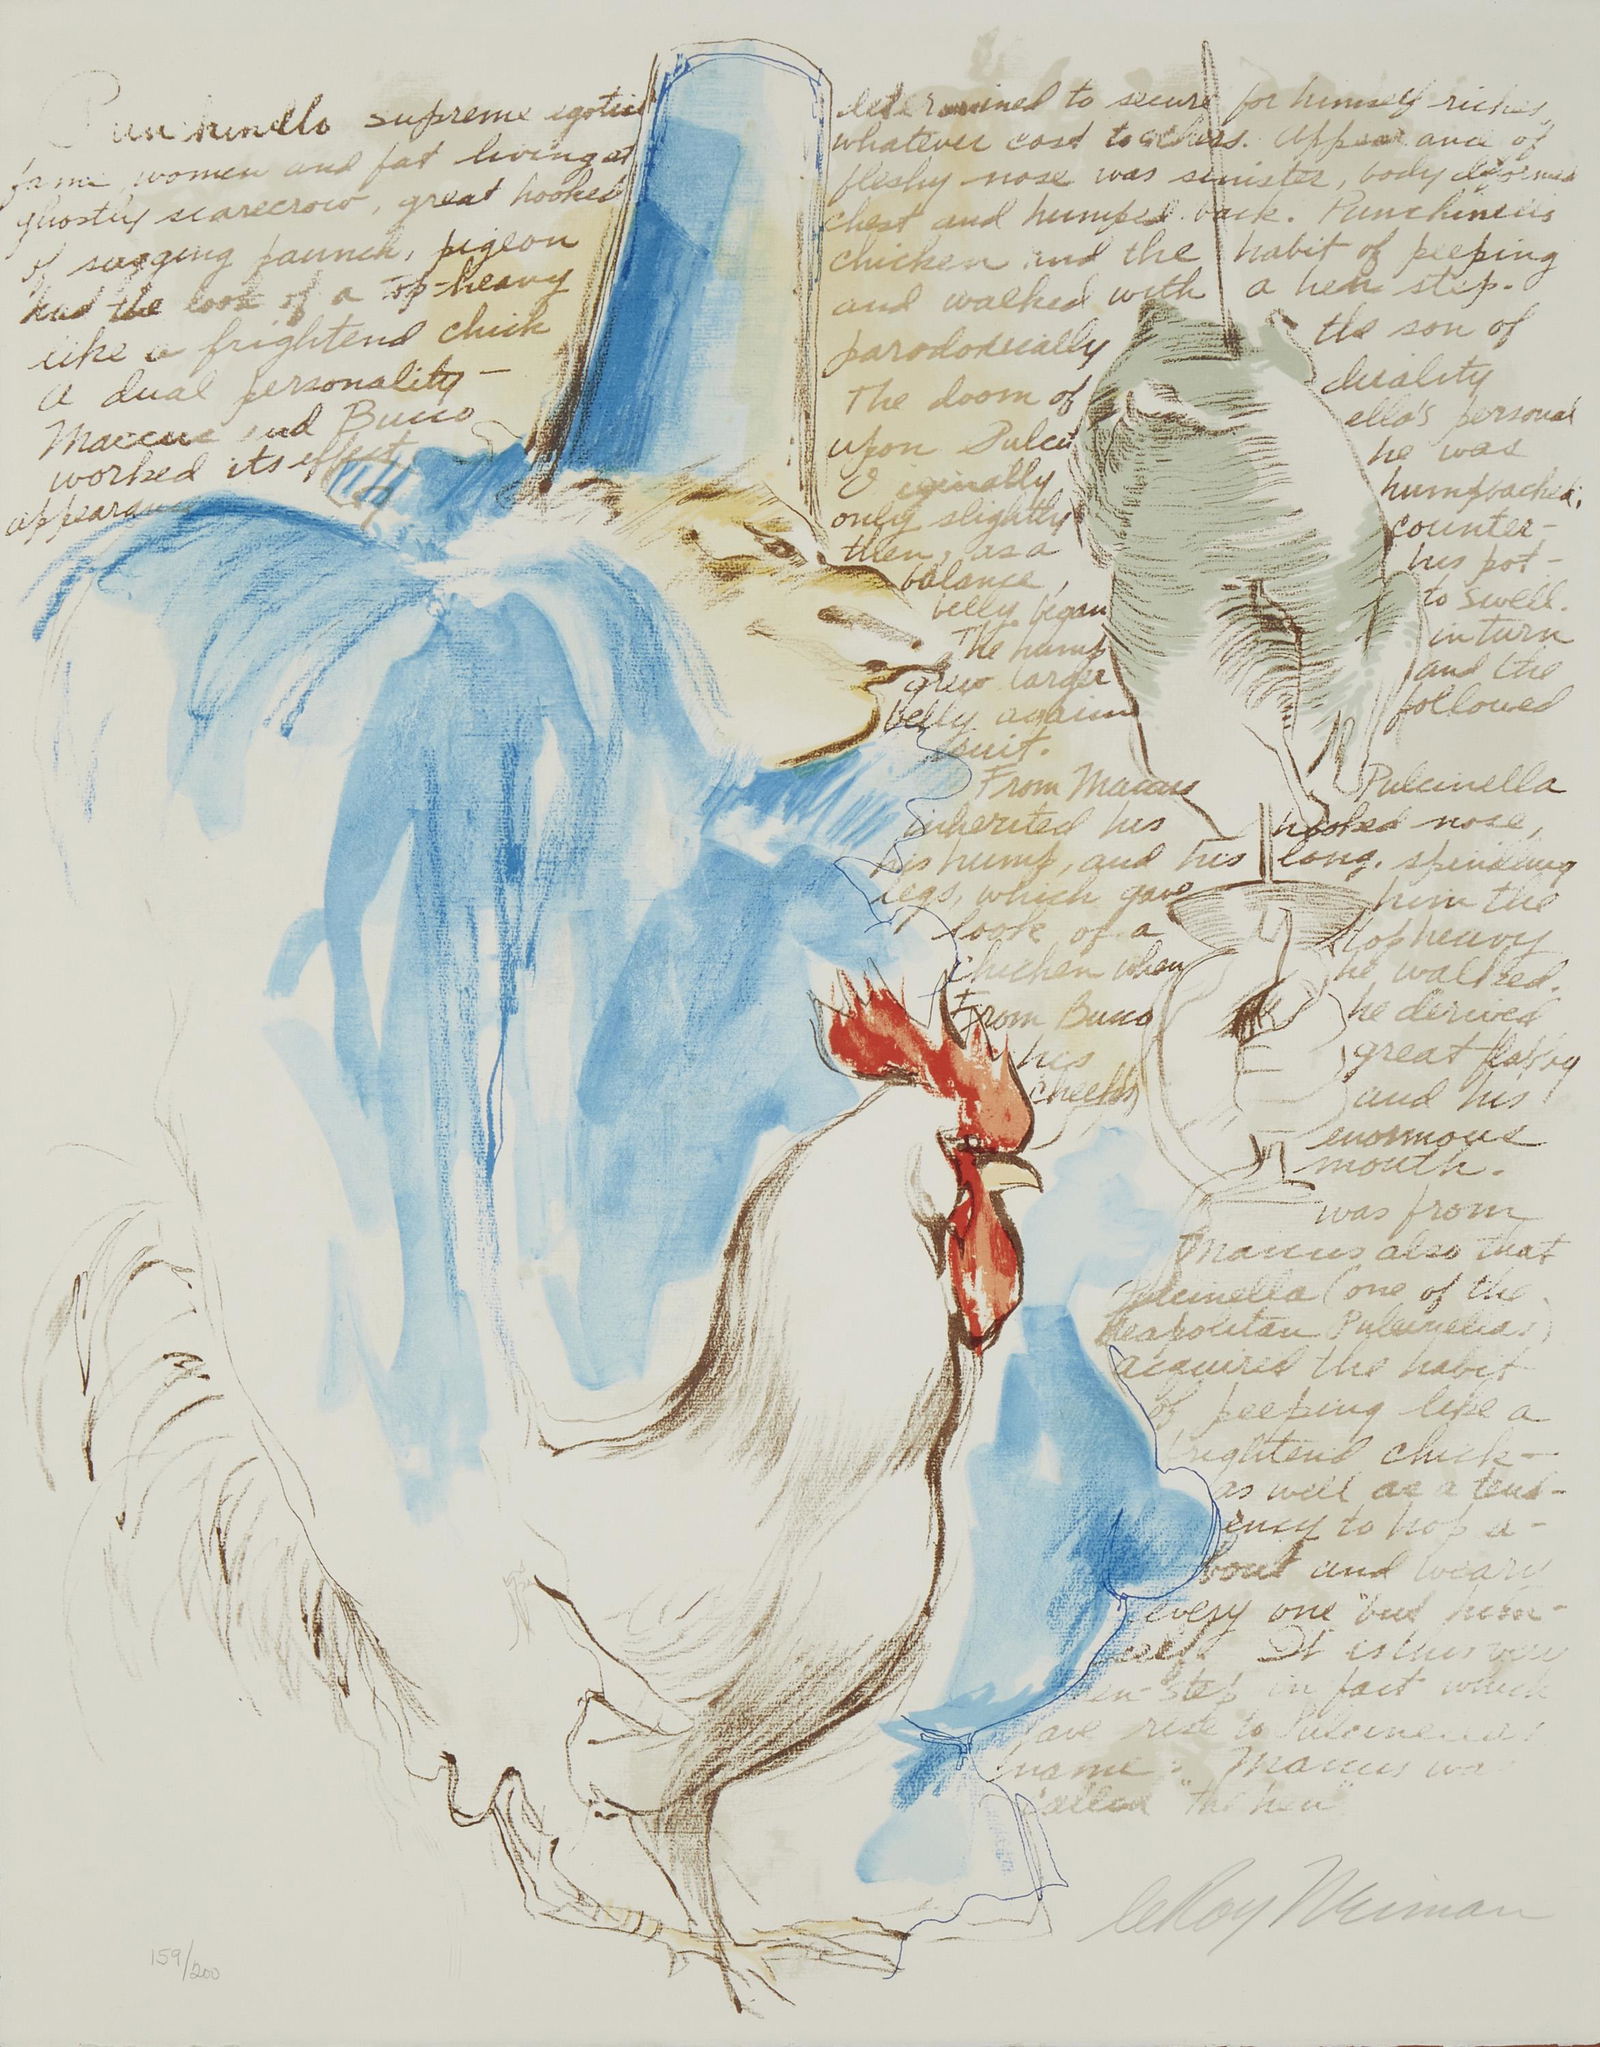 Punchinello supreme egotist determined to secure for himself riches,
fame women and fat living at whatever cost to others. Appearance of
ghostly scarecrow, great hooked fleshy nose was sinister, body deformed
of sagging paunch, pigeon chest and humped back. Punchinello's
had the look of a top-heavy chicken and the habit of peeping
like a frightend chick and walked with a hen step.
a dual personality— parodoxically the son of
Maccus and Bucco The doom of duality
worked its effect upon Pulcinella's personal
appearance Originally he was
only slightly humpbacked;
then, as a counter-
balance, his pot-
belly began to swell.
The hump in turn
grew larger and the
belly again followed
suit.
From Maccus Pulcinella
inherited his hooked nose,
his hump, and his long, spindling
legs, which gave him the
look of a top heavy
chicken when he walked.
From Bucco he derived
his great flabby
cheeks and his
enormous
mouth.
was from
Maccus also that
Pulcinella (one of the
Neapolitan Pulcinellas)
acquired the habit
of peeping like a
frightend chick—
as well as a tend-
ency to hop a-
bout and weary
every one but him-
self. It is this very
hen-step in fact which
gave rise to Pulcinella's
name: Maccus was
called "the hen"
LeRoy Neiman
159/200